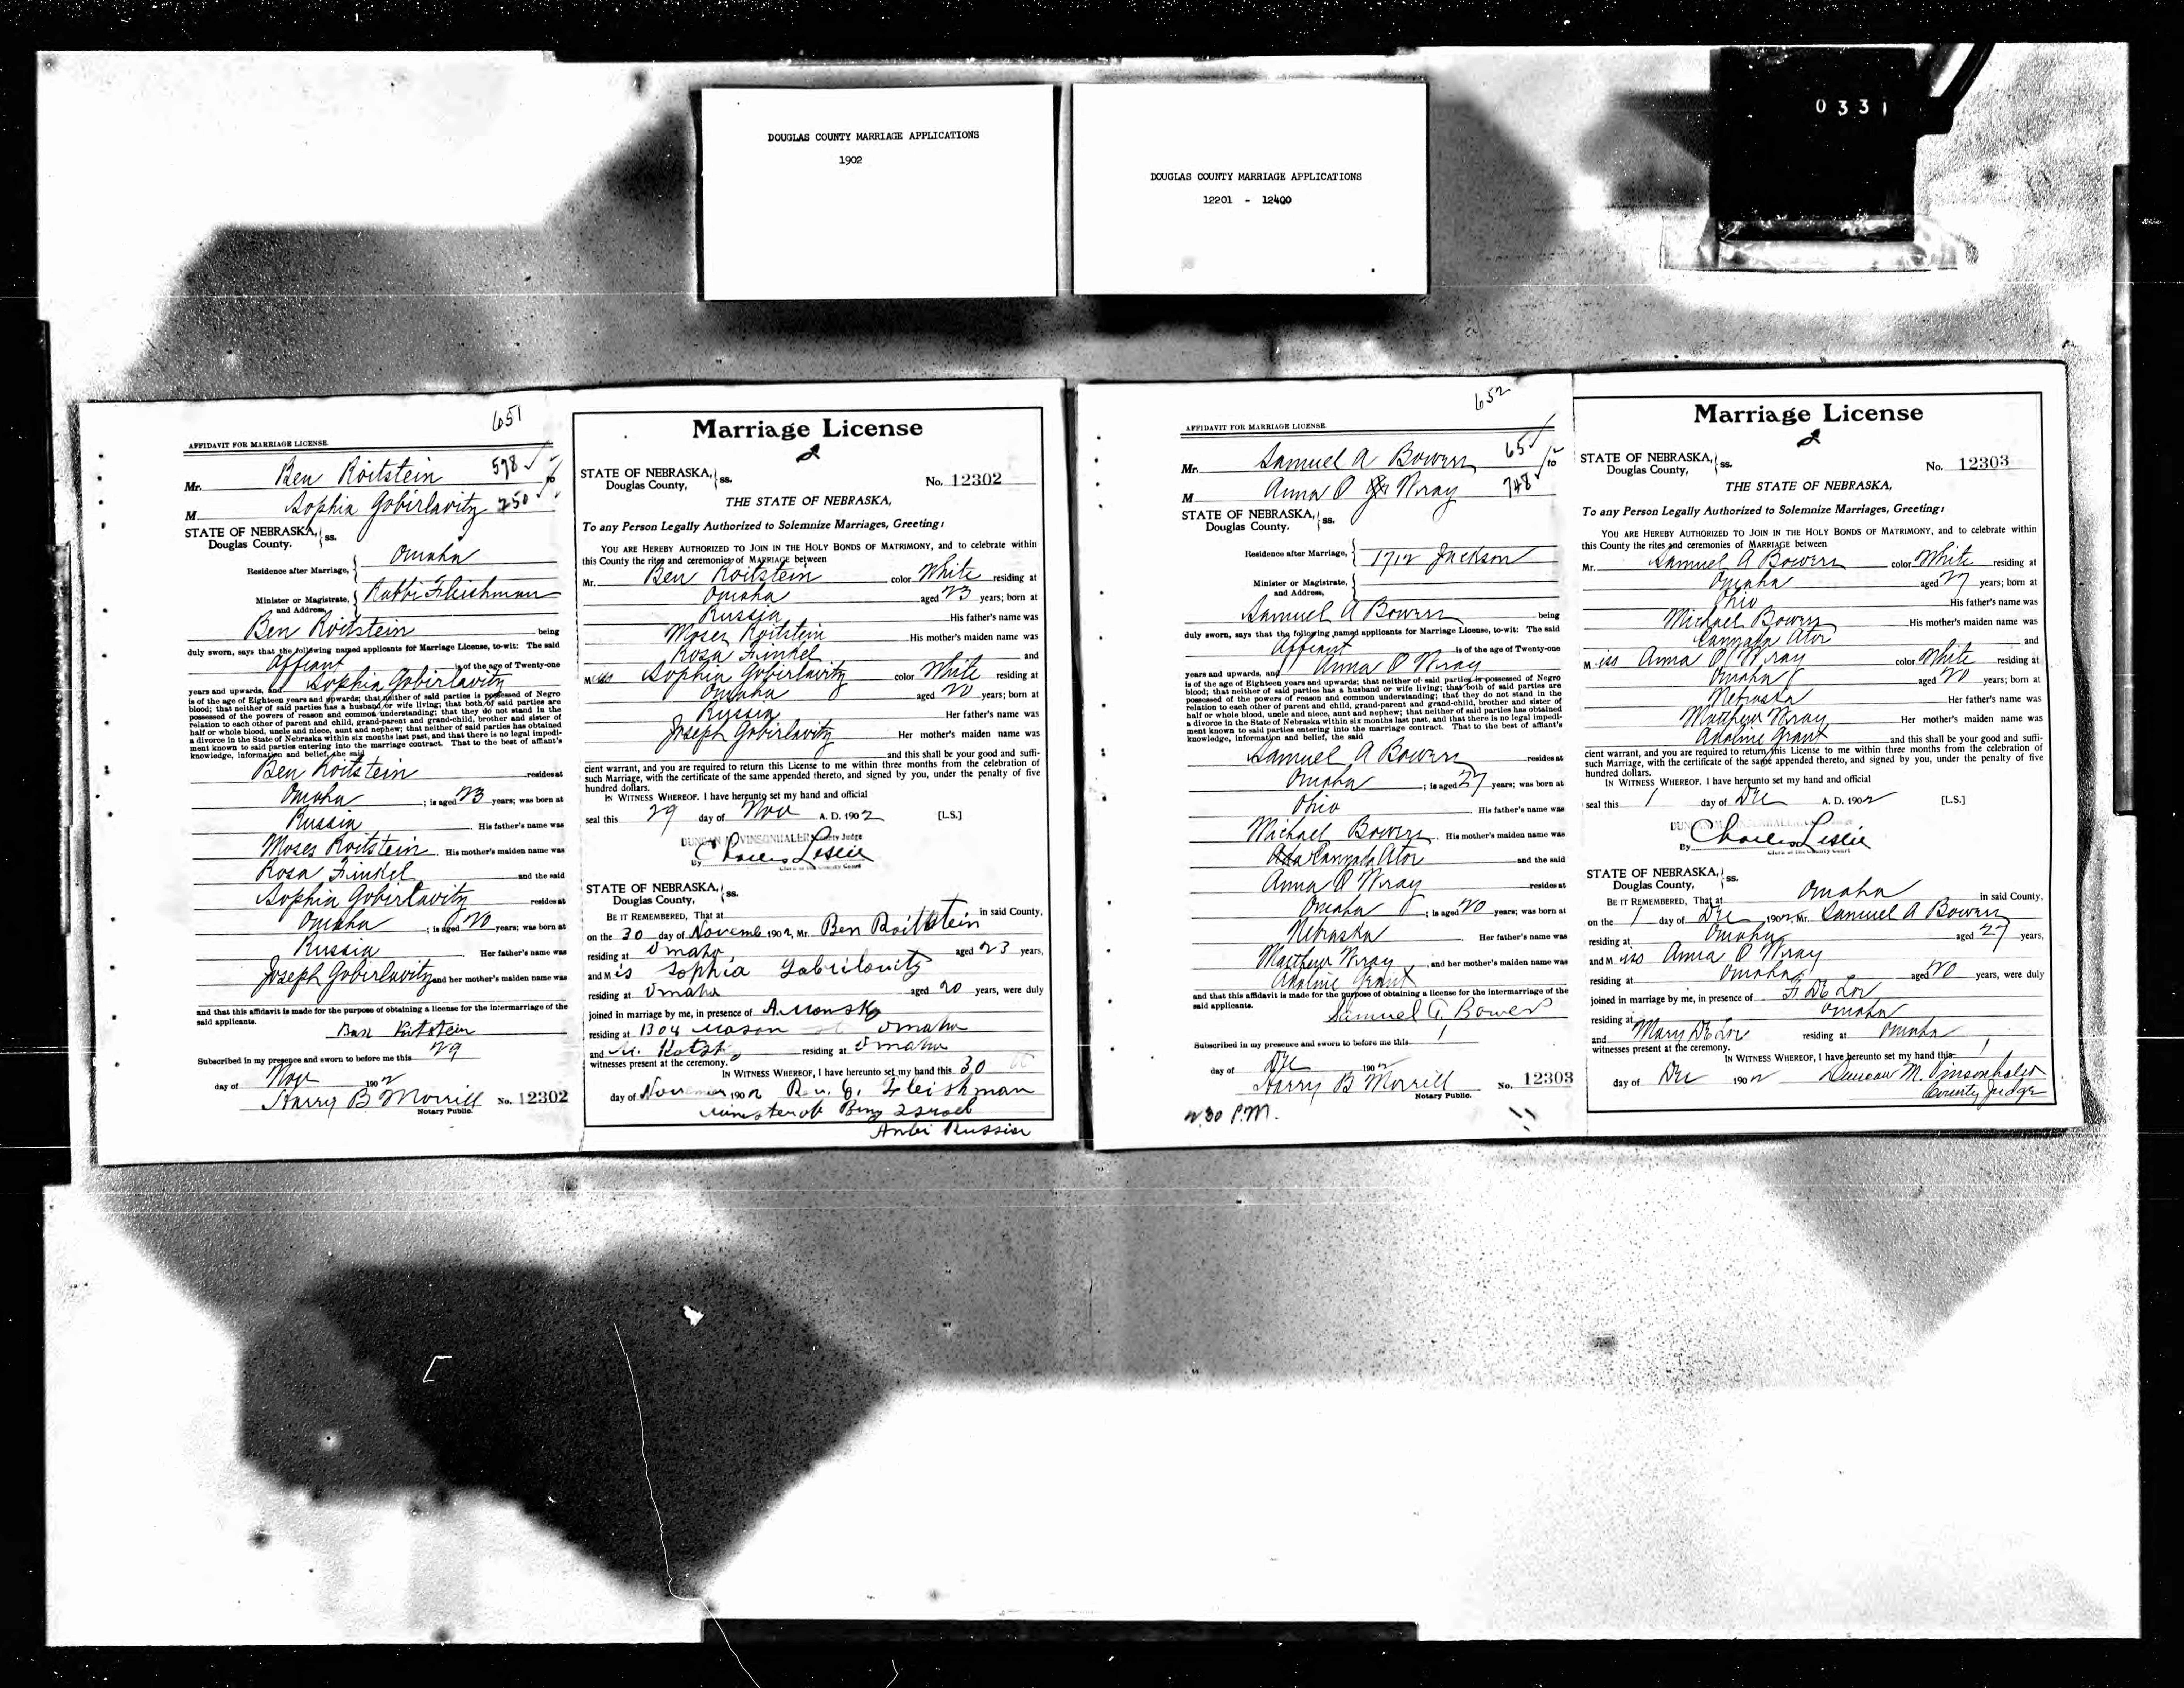 DOUGLAS COUNTY MARRIAGE APPLICATIONS
1902
DOUGLAS COUNTY MARRIAGE APPLICATIONS
12201 - 12400
0331
651
AFFIDAVIT FOR MARRIAGE LICENSE.
Mr. Ben Roitstein 598
M Sophia Gobirlavitz 250
STATE OF NEBRASKA, ss.
Douglas County.
Residence after Marriage, Omaha
Minister or Magistrate, and Address, Rabbi Fleishman
Ben Roitstein being
duly sworn, says that the following named applicants for Marriage License, to-wit: The said
Affiant is of the age of Twenty-one
years and upwards, and Sophia Gobirlavitz
is of the age of Eighteen years and upwards; that neither of said parties is possessed of Negro
blood; that neither of said parties has a husband or wife living; that both of said parties are
possessed of the powers of reason and common understanding; that they do not stand in the
relation to each other of parent and child, grand-parent and grand-child, brother and sister of
half or whole blood, uncle and niece, aunt and nephew; that neither of said parties has obtained
a divorce in the State of Nebraska within six months last past, and that there is no legal impedi-
ment known to said parties entering into the marriage contract. That to the best of affiant's
knowledge, information and belief, the said
Ben Roitstein resides at
Omaha ; is aged 23 years; was born at
Russia His father's name was
Moses Roitstein His mother's maiden name was
Rosa Finkel and the said
Sophia Gobirlavitz resides at
Omaha ; is aged 20 years; was born at
Russia Her father's name was
Joseph Gobirlavitz and her mother's maiden name was
and that this affidavit is made for the purpose of obtaining a license for the intermarriage of the
said applicants.
Subscribed in my presence and sworn to before me this 29
day of Nov 1902
Harry B Morrill No. 12302
Notary Public.
Marriage License
STATE OF NEBRASKA, ss.
Douglas County,
No. 12302
THE STATE OF NEBRASKA,
To any Person Legally Authorized to Solemnize Marriages, Greeting:
YOU ARE HEREBY AUTHORIZED TO JOIN IN THE HOLY BONDS OF MATRIMONY, and to celebrate within
this County the rites and ceremonies of MARRIAGE between
Mr. Ben Roitstein color White residing at
Omaha aged 23 years; born at
Russia His father's name was
Moses Roitstein His mother's maiden name was
Rosa Finkel and
Miss Sophia Gobirlavitz color White residing at
Omaha aged 20 years; born at
Russia Her father's name was
Joseph Gobirlavitz Her mother's maiden name was
and this shall be your good and suffi-
cient warrant, and you are required to return this License to me within three months from the celebration of
such Marriage, with the certificate of the same appended thereto, and signed by you, under the penalty of five
hundred dollars.
IN WITNESS WHEREOF. I have hereunto set my hand and official
seal this 29 day of Nov A. D. 1902 [L.S.]
DUNCAN M. VINSONHALER County Judge
By Charles Leslie
Clerk of the County Court
STATE OF NEBRASKA, ss.
Douglas County,
BE IT REMEMBERED, That at in said County,
on the 30 day of Novemb 1902, Mr. Ben Roitstein
residing at Omaha, aged 23 years,
and Mis Sophia Gabrilowitz
residing at Omaha aged 20 years, were duly
joined in marriage by me, in presence of A. Monsky
residing at 1304 Mason st Omaha
and residing at Omaha
witnesses present at the ceremony.
IN WITNESS WHEREOF, I have hereunto set my hand this 30
day of November 1902 Fleishman
Minister of Beny Israel
Russian
652
AFFIDAVIT FOR MARRIAGE LICENSE
Mr. Samuel A Bowers 65
M Anna O Wray 748
STATE OF NEBRASKA, ss.
Douglas County.
Residence after Marriage, 1712 Jackson
Minister or Magistrate, and Address,
Samuel A Bowers being
duly sworn, says that the following named applicants for Marriage License, to-wit: The said
Affiant is of the age of Twenty-one
years and upwards, and Anna O Wray
is of the age of Eighteen years and upwards; that neither of said parties is possessed of Negro
blood; that neither of said parties has a husband or wife living; that both of said parties are
possessed of the powers of reason and common understanding; that they do not stand in the
relation to each other of parent and child, grand-parent and grand-child, brother and sister of
half or whole blood, uncle and niece, aunt and nephew; that neither of said parties has obtained
a divorce in the State of Nebraska within six months last past, and that there is no legal impedi-
ment known to said parties entering into the marriage contract. That to the best of affiant's
knowledge, information and belief, the said
Samuel A Bowers resides at
Omaha ; is aged 27 years; was born at
Ohio His father's name was
Michael Bowers His mother's maiden name was
Ator and the said
Anna O Wray resides at
Omaha ; is aged 20 years; was born at
Nebraska Her father's name was
Matthew Wray, and her mother's maiden name was
Adaline Grant
and that this affidavit is made for the purpose of obtaining a license for the intermarriage of the
said applicants.
Samuel A. Bowers
Subscribed in my presence and sworn to before me this 1
day of Dec 1902
Harry B Morrill No. 12303
Notary Public.
2.30 P.M.
Marriage License
STATE OF NEBRASKA, ss.
Douglas County,
No. 12303
THE STATE OF NEBRASKA,
To any Person Legally Authorized to Solemnize Marriages, Greeting:
YOU ARE HEREBY AUTHORIZED TO JOIN IN THE HOLY BONDS OF MATRIMONY, and to celebrate within
this County the rites and ceremonies of MARRIAGE between
Mr. Samuel A Bowers color White residing at
Omaha aged 27 years; born at
Ohio His father's name was
Michael Bowers His mother's maiden name was
Ator and
Miss Anna O Wray color White residing at
Omaha aged 20 years; born at
Nebraska Her father's name was
Matthew Wray Her mother's maiden name was
Adaline Grant and this shall be your good and suffi-
cient warrant, and you are required to return this License to me within three months from the celebration of
such Marriage, with the certificate of the same appended thereto, and signed by you, under the penalty of five
hundred dollars.
IN WITNESS WHEREOF. I have hereunto set my hand and official
seal this 1 day of Dec A. D. 1902 [L.S.]
By Charles Leslie
Clerk of the County Court
STATE OF NEBRASKA, ss.
Douglas County,
BE IT REMEMBERED, That at Omaha in said County,
on the 1 day of Dec 1902, Mr. Samuel A Bowers
residing at Omaha aged 27 years,
and Miss Anna O Wray
residing at Omaha aged 20 years, were duly
joined in marriage by me, in presence of F De Lor
residing at Omaha
and Mary De Lor residing at Omaha
witnesses present at the ceremony.
IN WITNESS WHEREOF, I have hereunto set my hand this 1
day of Dec 1902 Duncan M. Vinsonhaler
County Judge